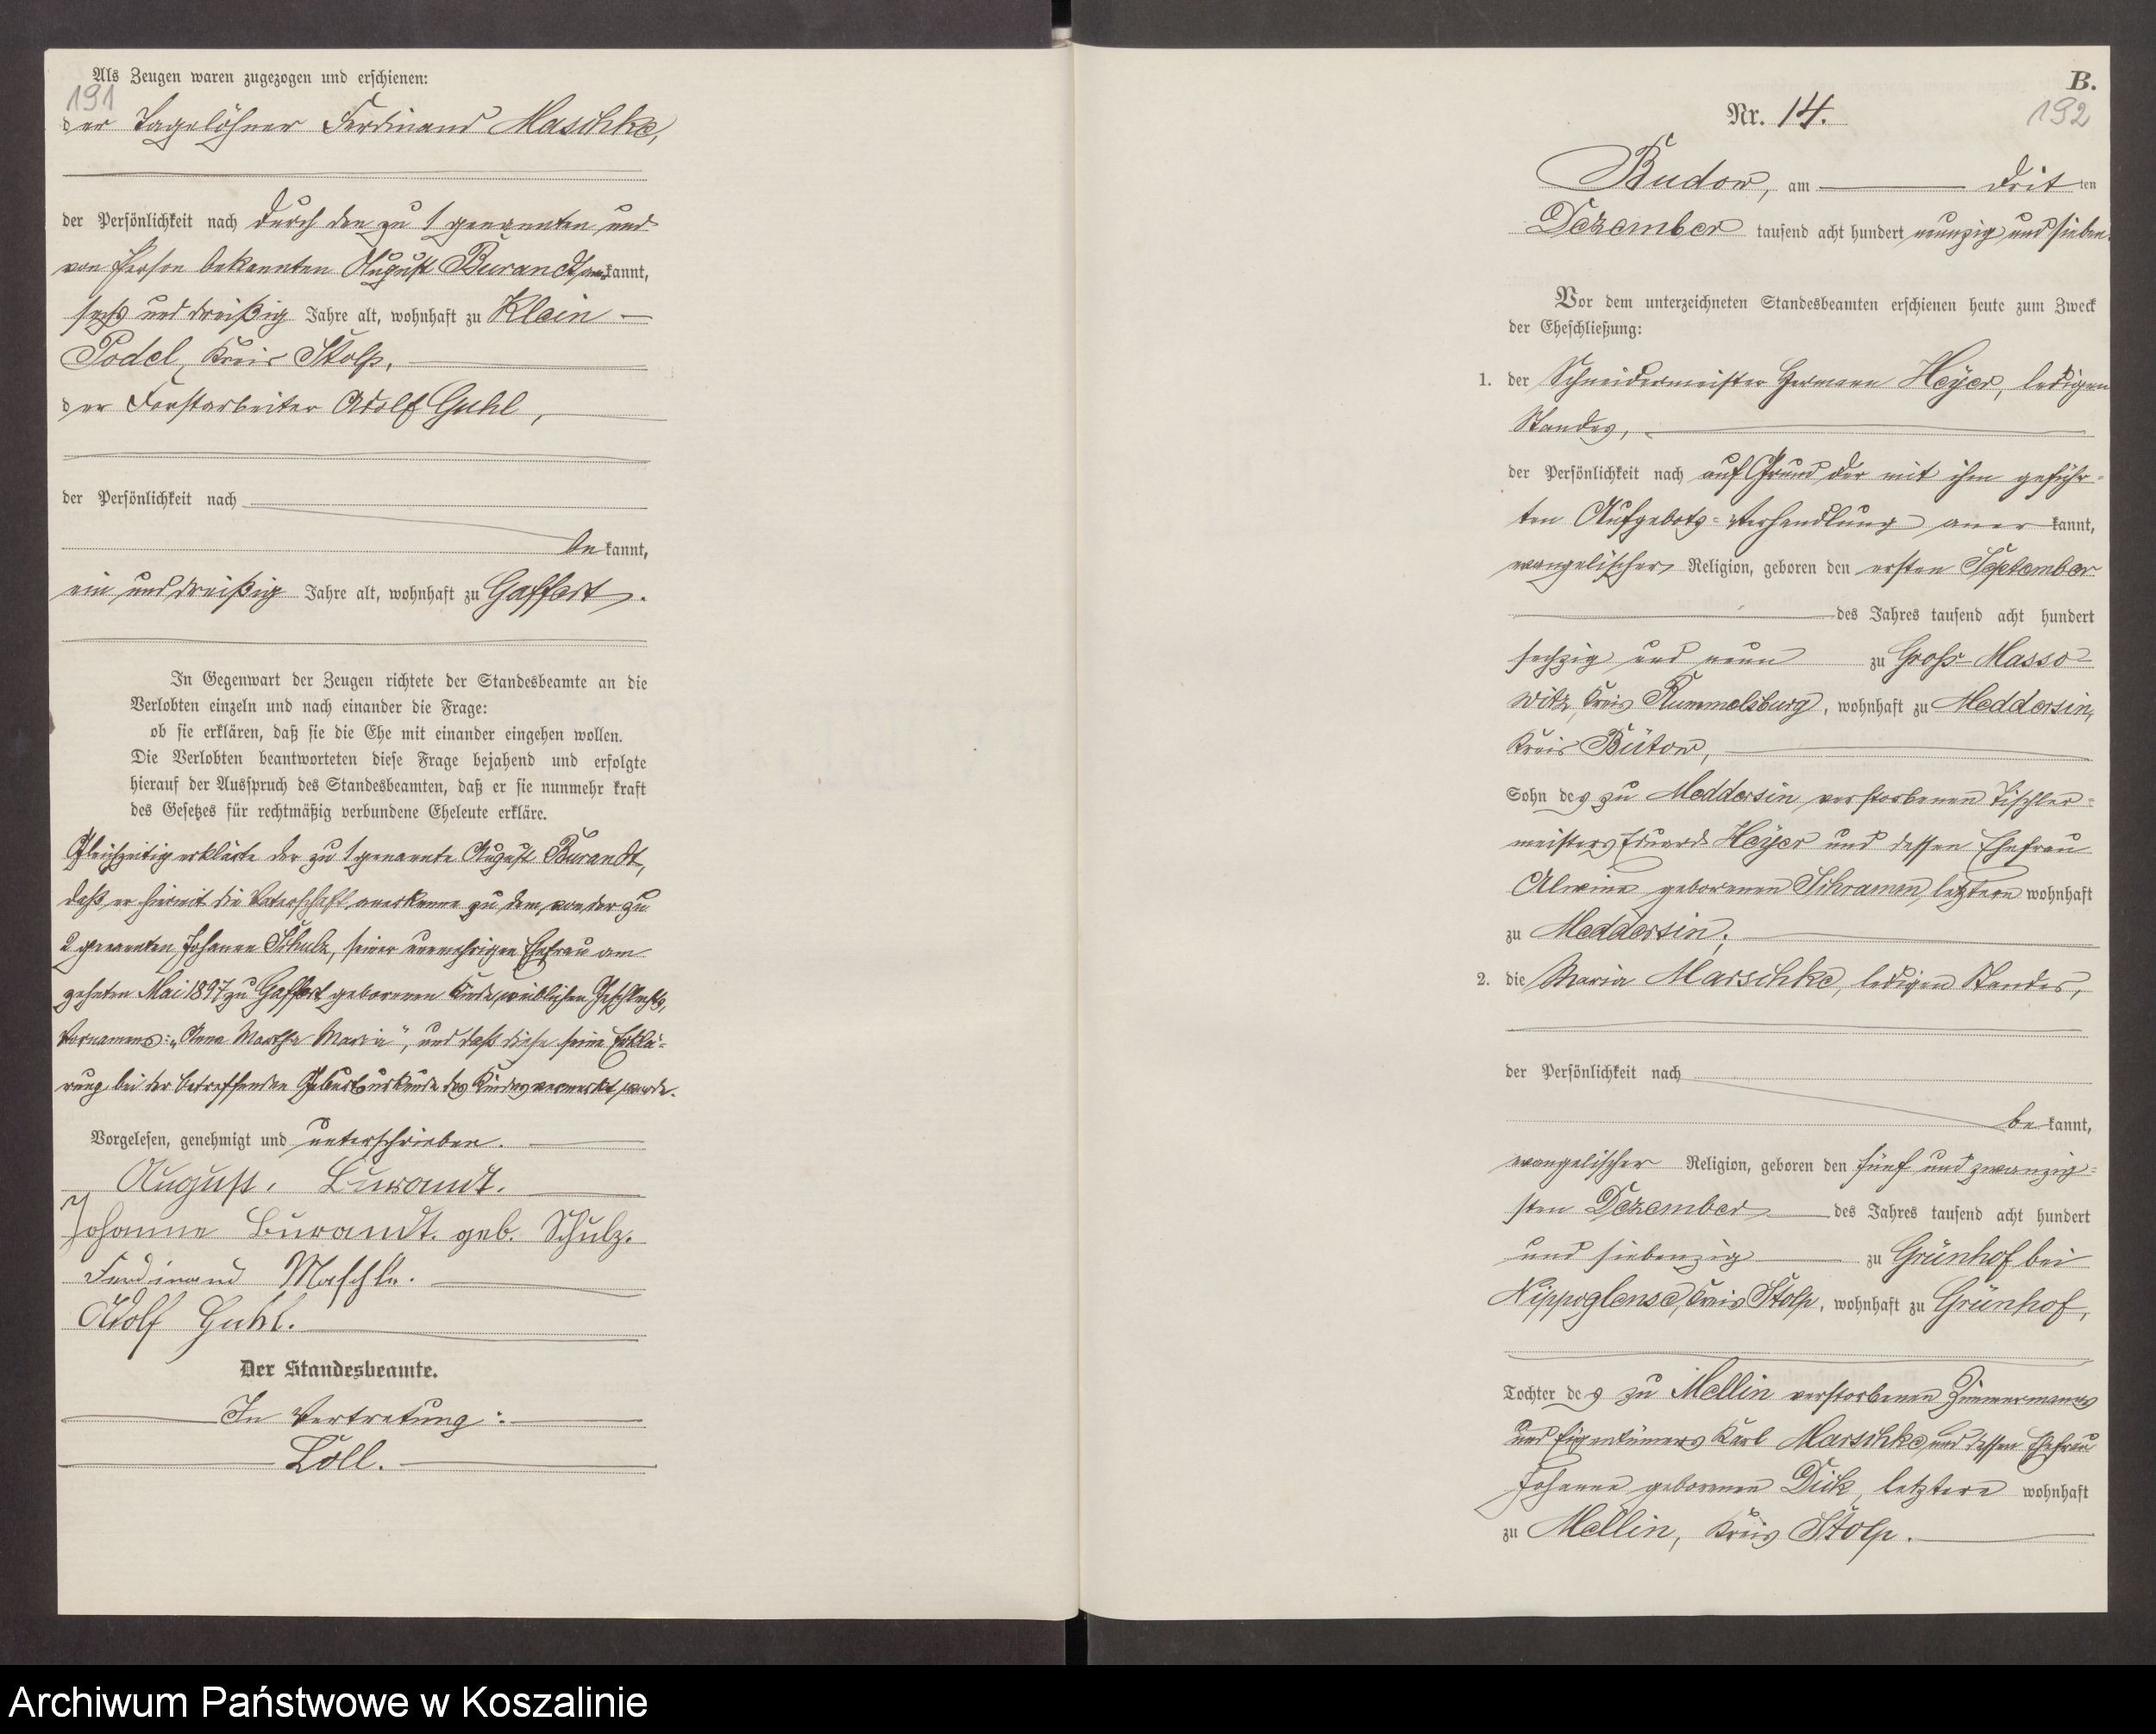 Als Zeugen waren zugezogen und erschienen:
191
der Tagelöhner Ferdinand Maschke,
der Persönlichkeit nach durch den zu 1 genannten und
von Person bekannten August Burandt anerkannt,
sechs und dreißig Jahre alt, wohnhaft zu Klein
Podel, Kreis Stolp,
der Forstarbeiter Adolf Guhl,
der Persönlichkeit nach
bekannt,
ein und dreißig Jahre alt, wohnhaft zu Gaffert.
In Gegenwart der Zeugen richtete der Standesbeamte an die
Verlobten einzeln und nach einander die Frage:
ob sie erklären, daß sie die Ehe mit einander eingehen wollen.
Die Verlobten beantworteten diese Frage bejahend und erfolgte
hierauf der Ausspruch des Standesbeamten, daß er sie nunmehr kraft
des Gesetzes für rechtmäßig verbundene Eheleute erkläre.
Gleichzeitig erklärte der zu 1 genannte August Burandt,
daß er hiermit die Vaterschaft anerkenne zu dem, von der zu
2 genannten Johanne Schulz, seiner nunmehrigen Ehefrau am
zehnten Mai 1897 zu Gaffert geborenen Kinde, weiblichen Geschlechts,
Vornamens: „Anna Martha Maria", und daß diese seine Erklä-
rung bei der betreffenden Geburtsurkunde des Kindes vermerkt werde.
Vorgelesen, genehmigt und unterschrieben.
August. Burandt.
Johanne Burandt. geb. Schulz.
Ferdinand Maschke.
Adolf Guhl.
Der Standesbeamte.
In Vertretung:
Löll.
B.
Nr. 14.
192
Budow, am dritten
Dezember tausend acht hundert neunzig und sieben.
Vor dem unterzeichneten Standesbeamten erschienen heute zum Zweck
der Eheschließung:
1. der Schneidermeister Hermann Heyer, ledigen
Standes,
der Persönlichkeit nach auf Grund der mit ihm geführ-
ten Aufgebots-Verhandlung anerkannt,
evangelischer Religion, geboren den ersten September
des Jahres tausend acht hundert
sechzig und neun zu Groß-Masso-
witz, Kreis Rummelsburg, wohnhaft zu Meddersin,
Kreis Bütow,
Sohn des zu Meddersin verstorbenen Tischler-
meisters Eduard Heyer und dessen Ehefrau
Alwine geborenen Schramm, letztere wohnhaft
zu Meddersin;
2. die Maria Marschke, ledigen Standes,
der Persönlichkeit nach
bekannt,
evangelischer Religion, geboren den fünf und zwanzig-
sten Dezember des Jahres tausend acht hundert
und siebenzig zu Grünhof bei
Nippoglense, Kreis Stolp, wohnhaft zu Grünhof,
Tochter des zu Mellin verstorbenen Zimmermanns
und Eigentümers Karl Marschke und dessen Ehefrau
Johanne geborenen Dick, letztere wohnhaft
zu Mellin, Kreis Stolp.
Archiwum Państwowe w Koszalinie